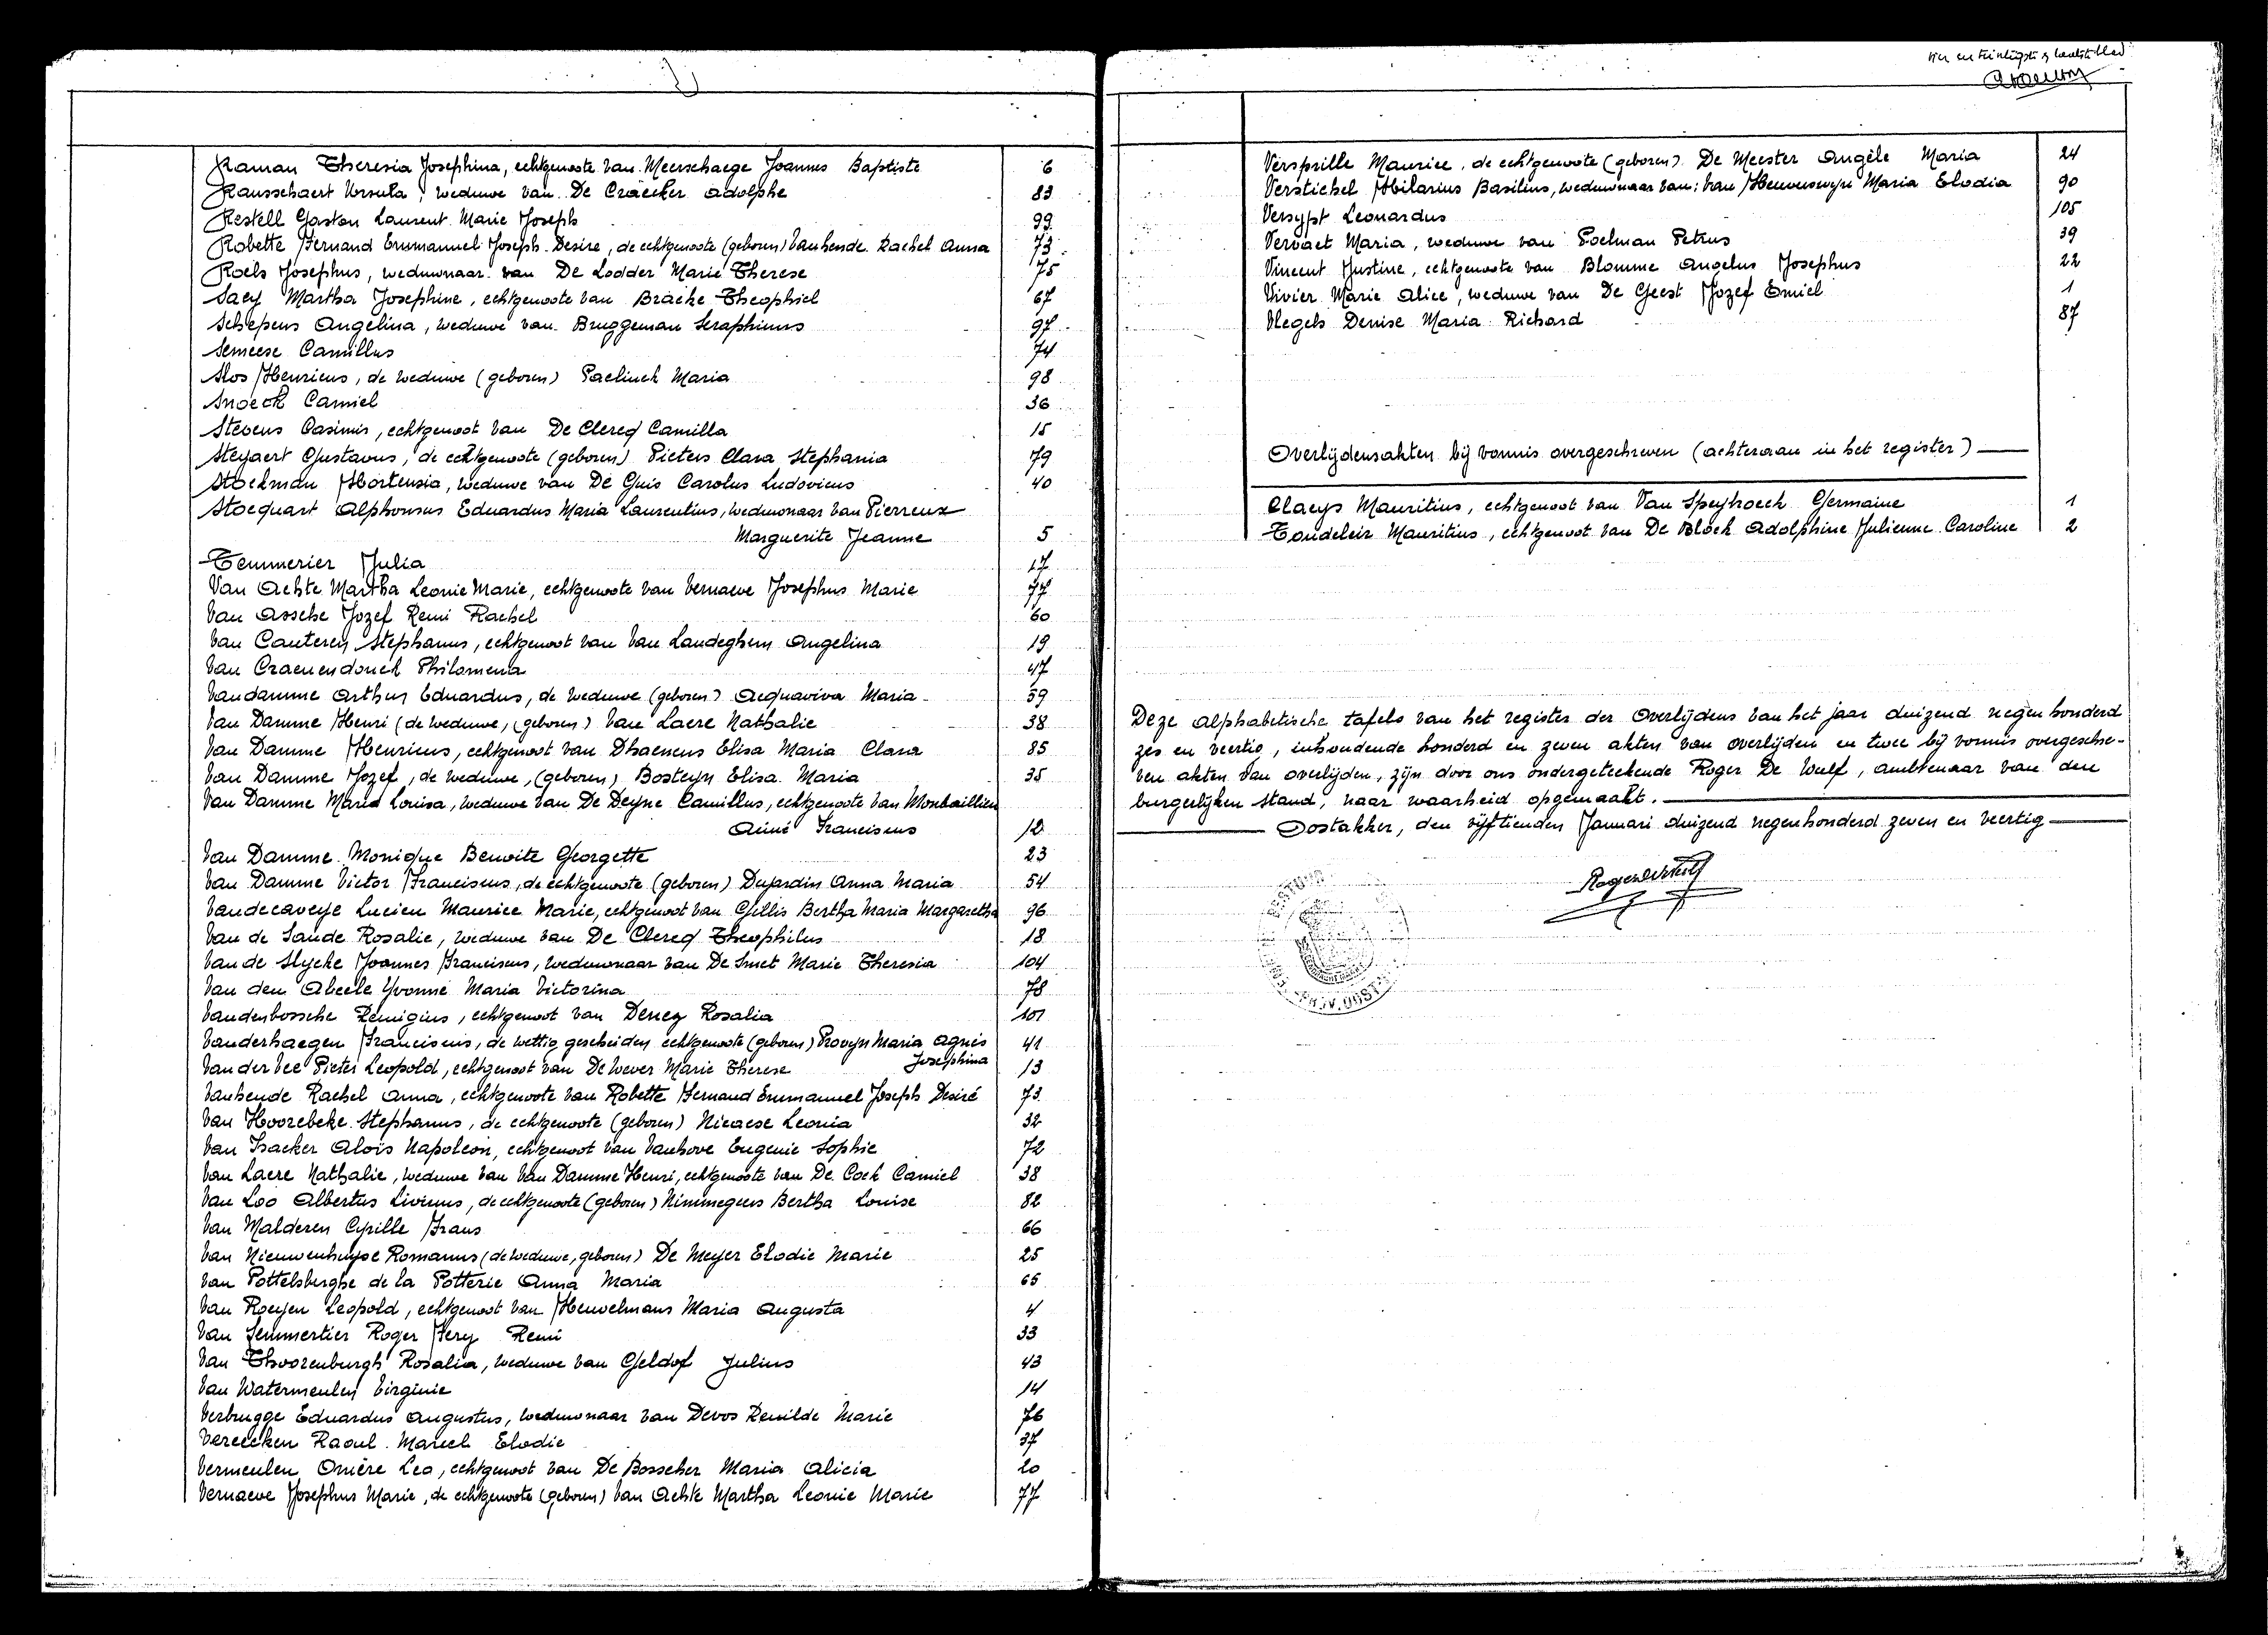 Raman Theresia Josephina, echtgenoote van Meerschaege Joannes Baptiste 6
Rausschaert Ursula, weduwe van De Craecker Adolphe 83
Restell Gaston Laurent Marie Joseph 99
Robette Fernand Emmanuel Joseph Desire, de echtgenoote (geboren) Vanhende Rachel Anna 73
Roels Josephus, weduwnaar van De Lodder Marie Therese 75
Saey Martha Josephine, echtgenoote van Bracke Theophiel 67
Schepens Angelina, weduwe van Bruggeman Seraphinus 97
Semeese Camillus 74
Slos Henricus, de weduwe (geboren) Paelinck Maria 98
Snoeck Camiel 36
Stevens Casimir, echtgenoot van De Clercq Camilla 15
Steyaert Gustavus, de echtgenoote (geboren) Pieters Clara Stephania 79
Stockman Hortensia, weduwe van De Guis Carolus Ludovicus 40
Stocquart Alphonsus Eduardus Maria Laurentius, weduwnaar van Pierreux
Marguerite Jeanne 5
Temmerier Julia 17
Van Achte Martha Leonie Marie, echtgenoote van Vernaeve Josephus Marie 77
Van Assche Jozef Remi Rachel 60
Van Cauteren Stephanus, echtgenoot van Van Landeghem Angelina 19
Van Craenendonck Philomena 47
Vandamme Arthur Eduardus, de weduwe (geboren) Acquaviva Maria 59
Van Damme Henri (de weduwe, (geboren) Van Laere Nathalie 38
Van Damme Henricus, echtgenoot van Dhaenens Elisa Maria Clara 85
Van Damme Jozef, de weduwe, (geboren) Bosteyn Elisa Maria 35
Van Damme Maria Louisa, weduwe van De Deyne Camillus, echtgenoote van Monbaillieu
Aimé Franciscus 12
Van Damme Monique Benoite Georgette 23
Van Damme Victor Franciscus, de echtgenoote (geboren) Dujardin Anna Maria 54
Vandecaveye Lucien Maurice Marie, echtgenoot van Gillis Bertha Maria Margaretha 96
Van de Sande Rosalie, weduwe van De Clercq Theophilus 18
Van de Slycke Joannes Franciscus, weduwnaar van De Smet Marie Theresia 104
Van den Abeele Yvonne Maria Victorina 78
Vandenbossche Remigius, echtgenoot van Deney Rosalia 101
Vanderhaegen Franciscus, de wettig gescheiden echtgenoote (geboren) Provyn Maria Agnes 41
Josephina
Van der Vee Pieter Leopold, echtgenoot van De Wever Marie Therese 13
Vanhende Rachel Anna, echtgenoote van Robette Fernand Emmanuel Joseph Desiré 73
Van Hoorebeke Stephanus, de echtgenoote (geboren) Nicaese Leonia 32
Van Isacker Aloïs Napoleon, echtgenoot van Vanhove Eugenie Sophie 72
Van Laere Nathalie, weduwe van Van Damme Henri, echtgenoote van De Cock Camiel 38
Van Loo Albertus Livinus, de echtgenoote (geboren) Nimmegeers Bertha Louise 82
Van Malderen Cyrille Frans 66
Van Nieuwenhuyse Romanus (de weduwe, geboren) De Meyer Elodie Marie 25
Van Pottelsberghe de la Potterie Anna Maria 65
Van Royen Leopold, echtgenoot van Heuvelmans Maria Augusta 4
Van Semmertier Roger Jery Remi 33
Van Thoorenburgh Rosalia, weduwe van Geldof Julius 43
Van Watermeulen Virginie 14
Verbrugge Eduardus Augustus, weduwnaar van Devos Remilde Marie 76
Vereecken Raoul Marcel Elodie 37
Vermeulen Omère Leo, echtgenoot van De Bosscher Maria Alicia 20
Vernaeve Josephus Marie, de echtgenoote (geboren) Van Achte Martha Leonie Marie 77
Versprille Maurice, de echtgenoote (geboren) De Meester Angèle Maria 24
Verstichel Hilarius Basilius, weduwnaar van: Van Heuverswyn Maria Elodia 90
Versypt Leonardus 105
Vervaet Maria, weduwe van Poelman Petrus 39
Vincent Justine, echtgenoote van Blomme Angelus Josephus 22
Vivier Marie Alice, weduwe van De Geest Jozef Emiel 1
Vlegels Denise Maria Richard 87
Overlijdensakten bij vonnis overgeschreven (achteraan in het register)
Claeys Mauritius, echtgenoot van Van Speybroeck Germaine 1
Tondeleir Mauritius, echtgenoot van De Block Adolphine Julienne Caroline 2
Deze alphabetische tafels van het register der Overlijdens van het jaar duizend negen honderd
zes en veertig, inhoudende honderd en zeven akten van overlijden en twee bij vonnis overgeschre-
ven akten van overlijden, zijn door ons ondergeteekende Roger De Wulf, ambtenaar van den
burgerlijken stand, naar waarheid opgemaakt.
Oostakker, den vijftienden Januari duizend negenhonderd zeven en veertig